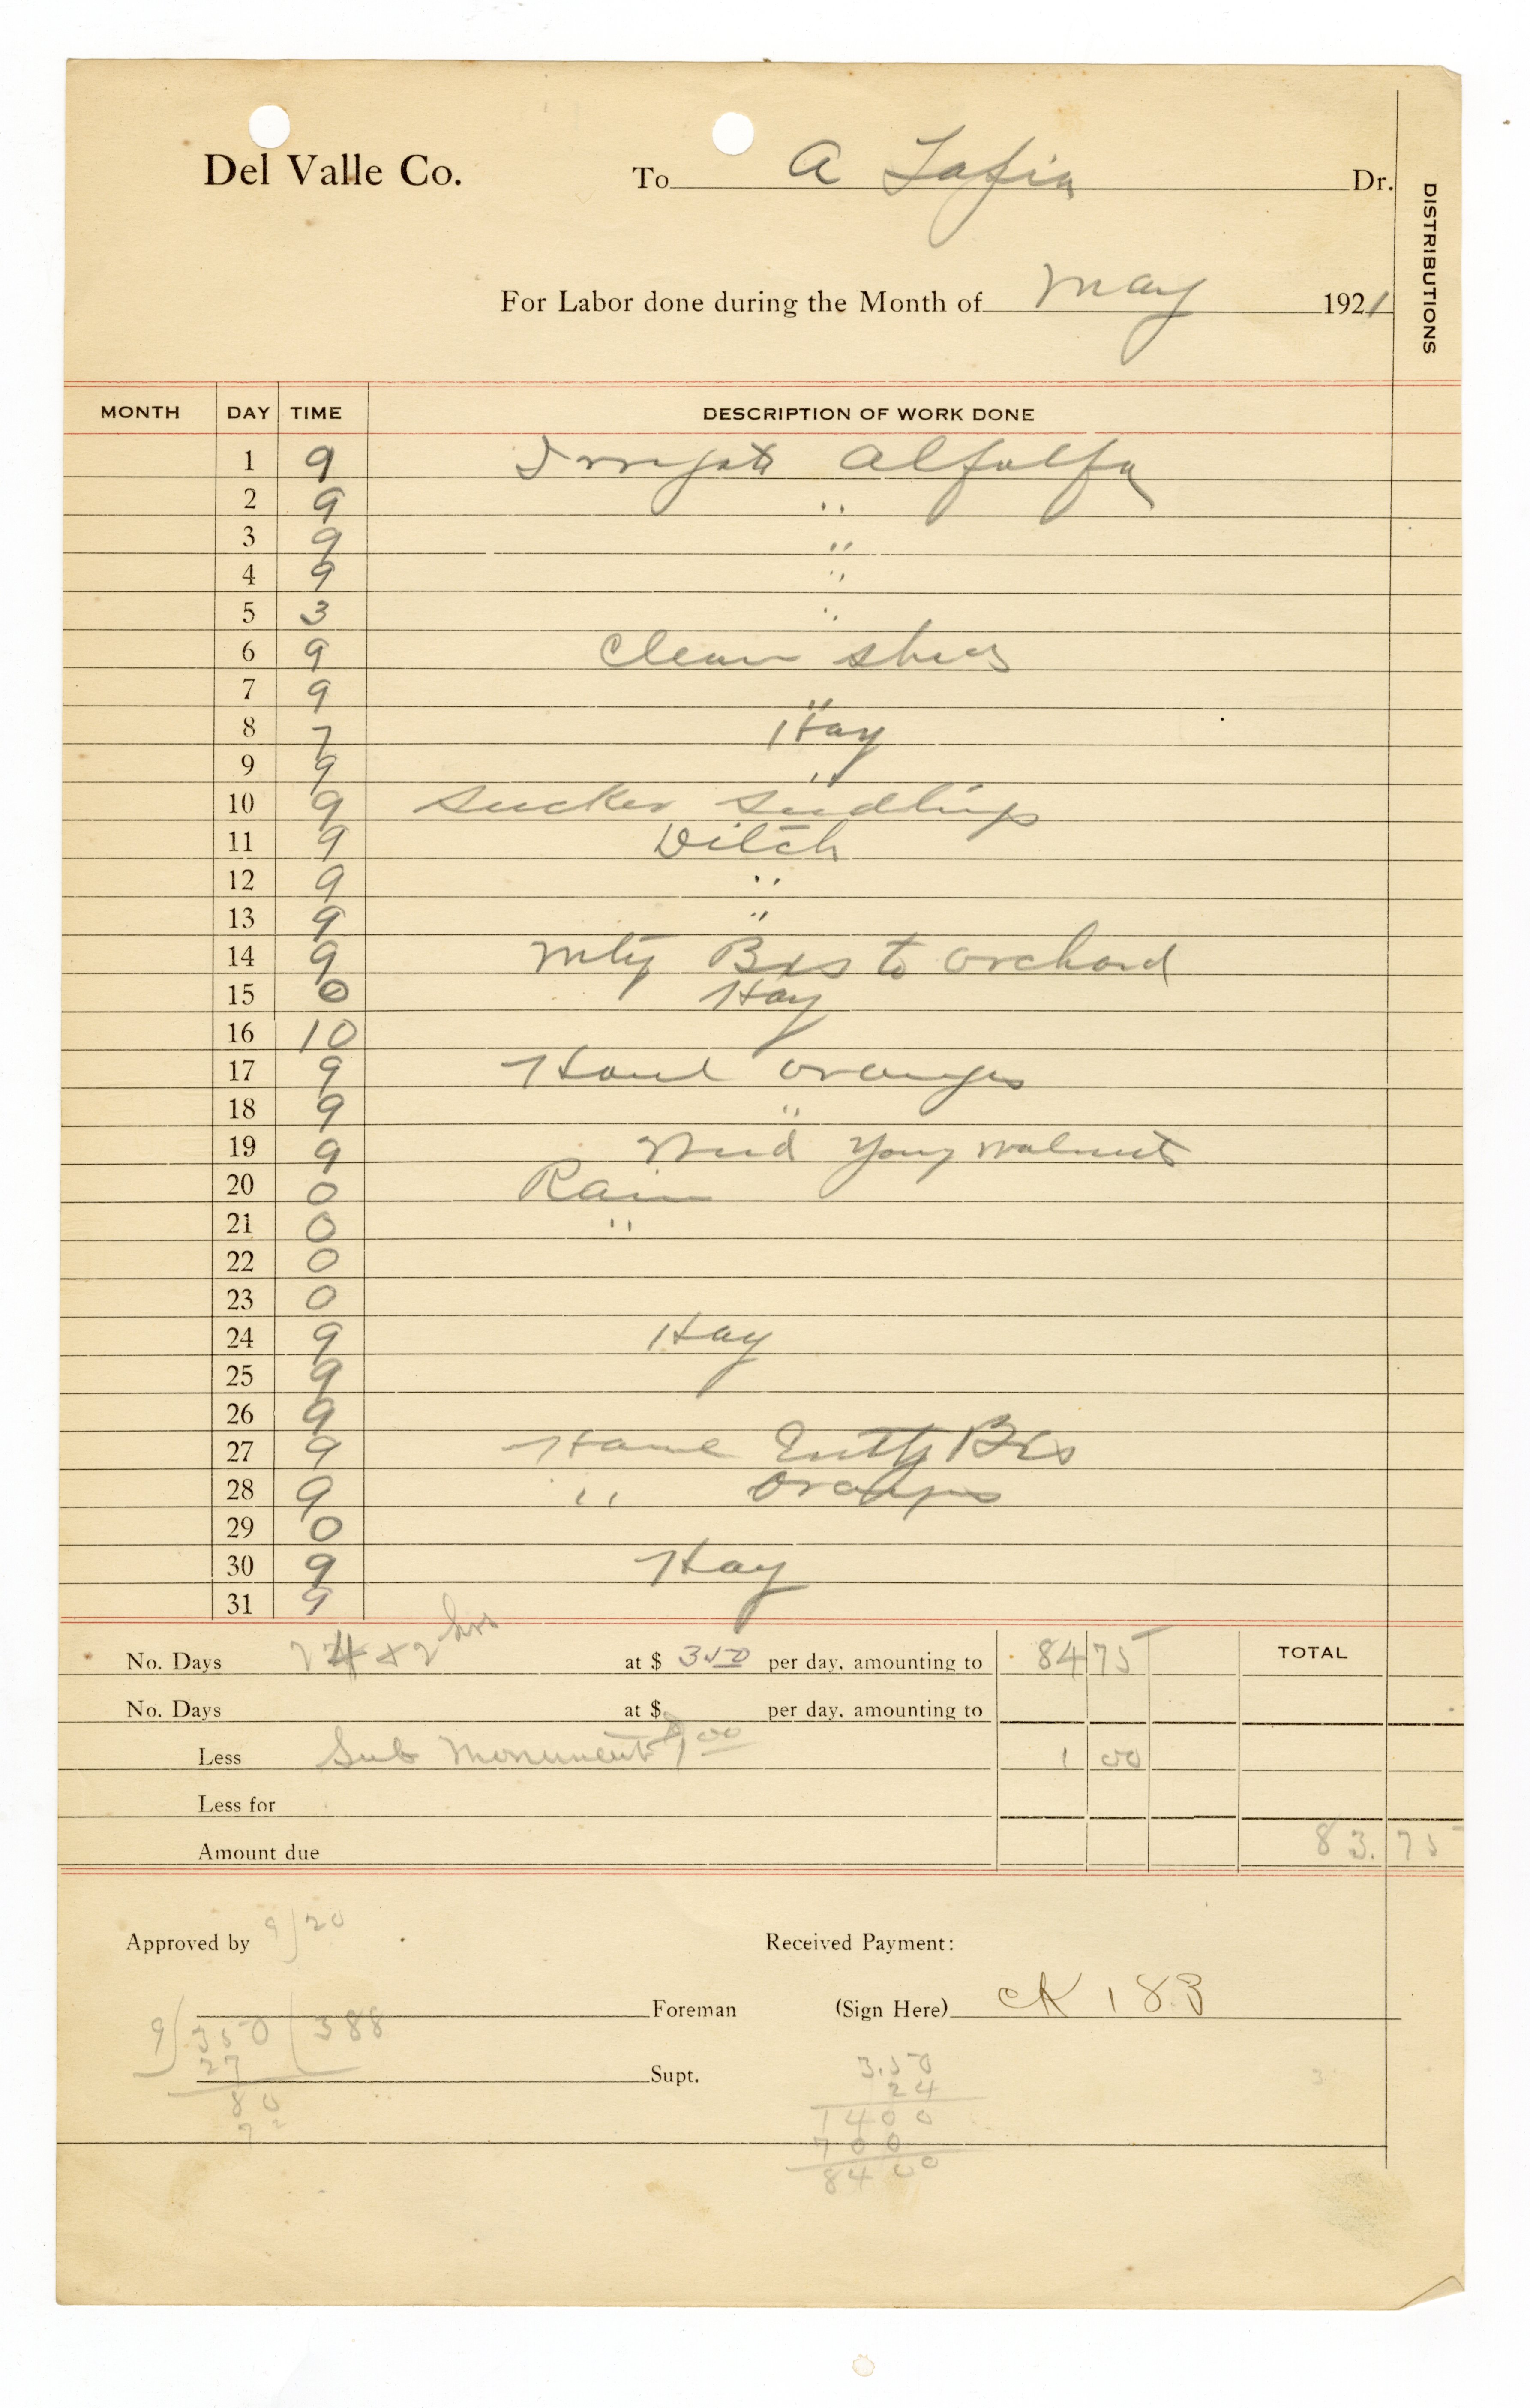 Del Valle Co. To A Tafia Dr.
DISTRIBUTIONS
For Labor done during the Month of May 1921
MONTH DAY TIME DESCRIPTION OF WORK DONE
1 9 Irrigate Alfalfa
2 9 "
3 9 "
4 9 "
5 3 "
6 9 Clean
7 9 "
8 7 Hay
9 9 "
10 9 Sucker Seedlings
11 9 Ditch
12 9 "
13 9 "
14 9 mty Bxs to orchard
15 0 Hay
16 10
17 9 Haul oranges
18 9 "
19 9 Weed Young walnuts
20 0 Rain
21 0 "
22 0
23 0
24 9 Hay
25 9
26 9
27 9 Haul Bxs
28 9 " Oranges
29 0
30 9 Hay
31 9
No. Days 24 & 2 hrs at $ 3.50 per day, amounting to 84 75 TOTAL
No. Days at $ per day, amounting to
Less Sub Monument $1.00 1 00
Less for
Amount due 83.75
9)20
Approved by Received Payment:
Foreman (Sign Here) CK 183
9)350(388
27
Supt.
80
72
3.50
24
1400
700
8400